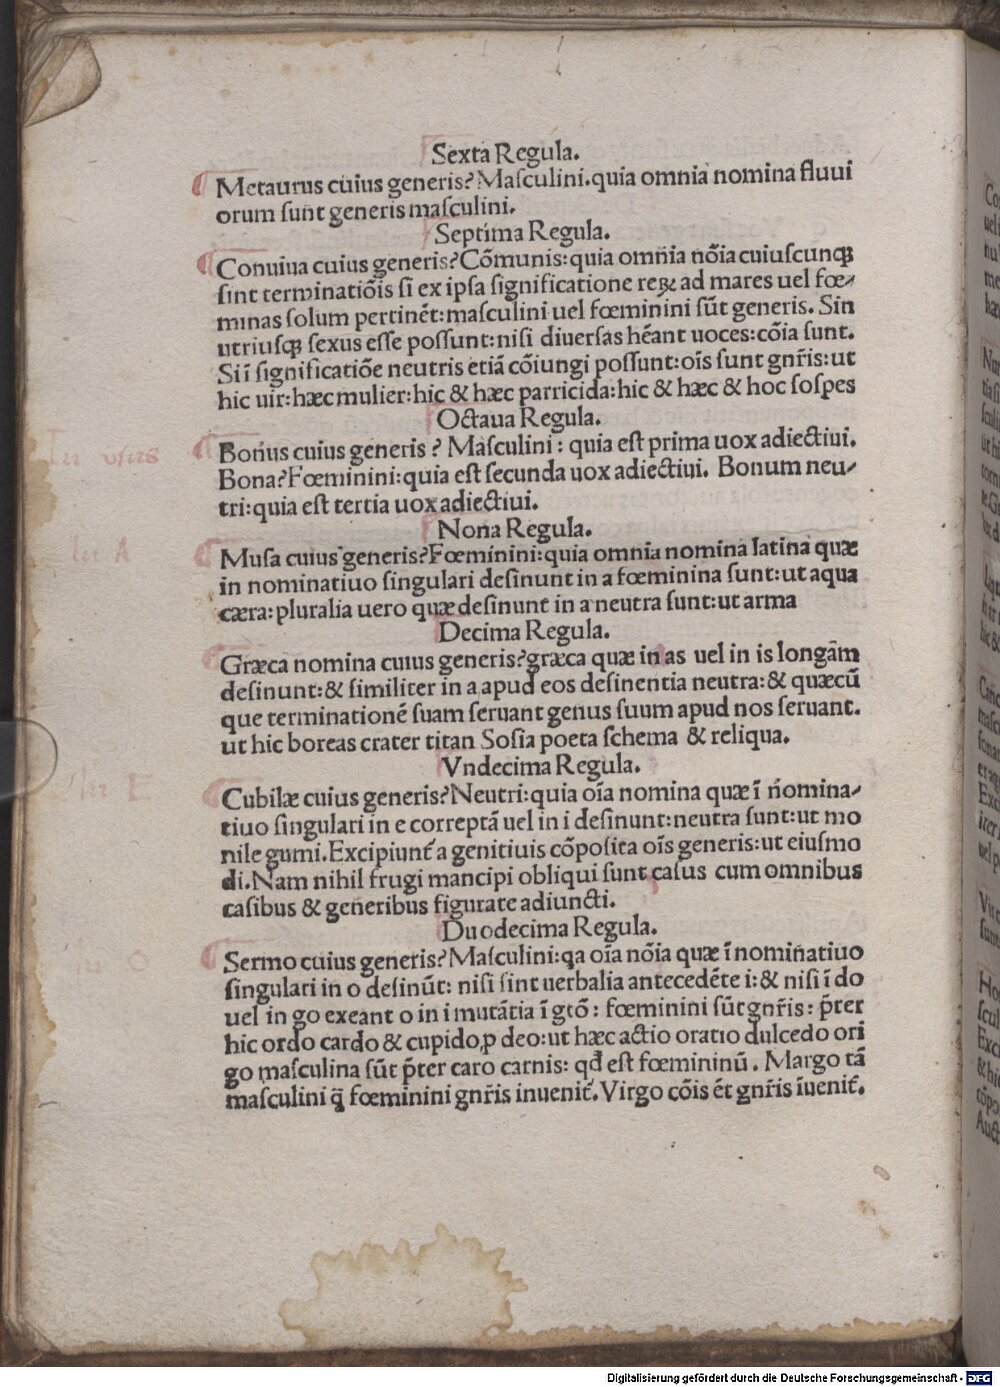 Sexta Regula.
Metaurus cuius generis? Maſculini. quia omnia nomina fluui
orum ſunt generis maſculini.
Septima Regula.
Conuiua cuius generis? Cōmunis: quia omnia nōia cuiuſcunqꝫ
ſint terminatiōis ſi ex ipſa ſignificatione reꝝ ad mares uel fœ-
minas ſolum pertinēt: maſculini uel fœminini ſūt generis. Sin
utriuſqꝫ ſexus eſſe poſſunt: niſi diuerſas hēant uoces: cōia ſunt.
Si ī ſignificatiōe neutris etiā cōiungi poſſunt: oīs ſunt gnr̄is: ut
hic uir: hæc mulier: hic & hæc parricida: hic & hæc & hoc ſoſpes
Octaua Regula.
In vſus
Bonus cuius generis? Maſculini: quia eſt prima uox adiectiui.
Bona? Fœminini: quia eſt ſecunda uox adiectiui. Bonum neu-
tri: quia eſt tertia uox adiectiui.
Nona Regula.
In A
Muſa cuius generis? Fœminini: quia omnia nomina latina quæ
in nominatiuo ſingulari deſinunt in a fœminina ſunt: ut aqua
cæra: pluralia uero quæ deſinunt in a neutra ſunt: ut arma
Decima Regula.
Græca nomina cuius generis? græca quæ in as uel in is longām
deſinunt: & ſimiliter in a apud eos deſinentia neutra: & quæcū
que terminationē ſuam ſeruant genus ſuum apud nos ſeruant.
ut hic boreas crater titan Soſia poeta ſchema & reliqua.
Vndecima Regula.
In E
Cubilæ cuius generis? Neutri: quia oīa nomina quæ ī nomina-
tiuo ſingulari in e correptā uel in i deſinunt: neutra ſunt: ut mo
nile gumi. Excipiunt̄ a genitiuis cōpoſita oīs generis: ut eiuſmo
di. Nam nihil frugi mancipi obliqui ſunt caſus cum omnibus
caſibus & generibus figurate adiuncti.
Duodecima Regula.
In O
Sermo cuius generis? Maſculini: qa oīa nōia quæ ī nominatiuo
ſingulari in o deſinūt: niſi ſint uerbalia antecedēte i: & niſi ī do
uel in go exeant o in i mutātia ī gtō: fœminini ſūt gnr̄is: p̄ter
hic ordo cardo & cupido, ꝓ deo: ut hæc actio oratio dulcedo ori
go maſculina ſūt p̄ter caro carnis: qđ eſt fœmininū. Margo tā
maſculini q̄ fœminini gnr̄is inuenit̄. Virgo cōis ēt gnr̄is īuenit̄.
Digitalisierung gefördert durch die Deutsche Forschungsgemeinschaft - DFG